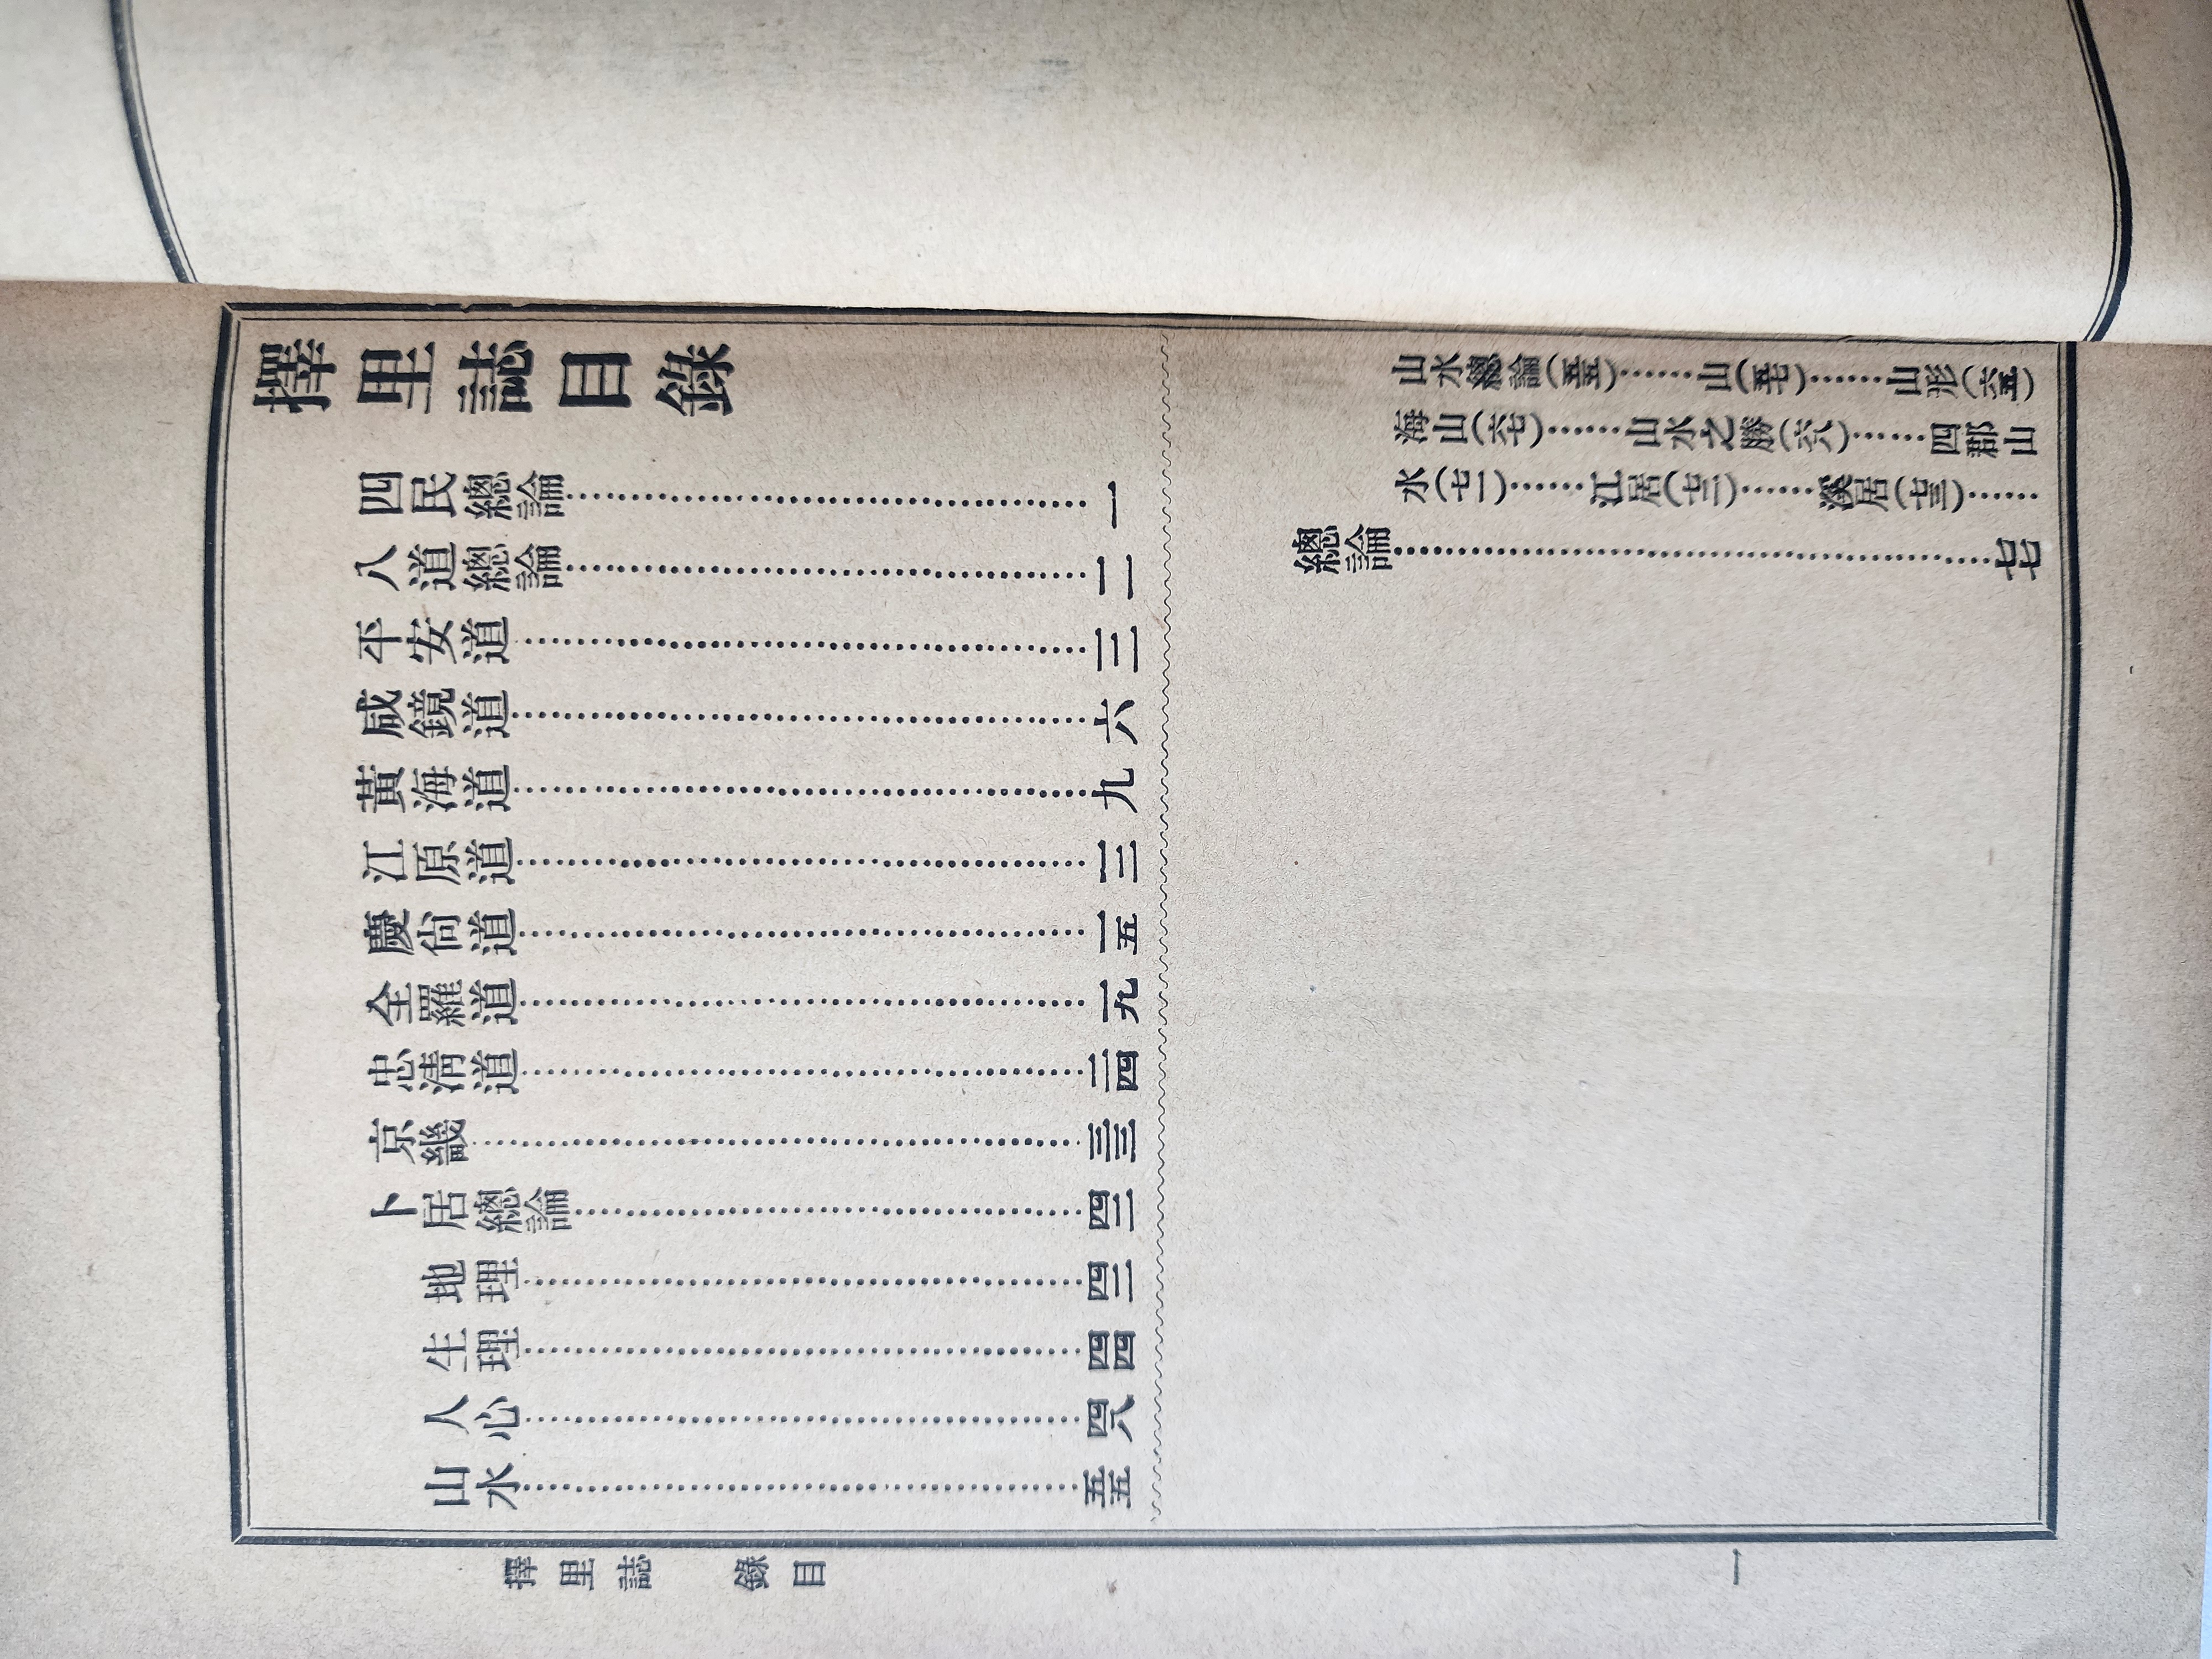 擇里誌目錄
四民總論……………………………一
八道總論……………………………二
平安道……………………………三
咸鏡道……………………………六
黃海道……………………………九
江原道……………………………一二
慶尙道……………………………一五
全羅道……………………………一九
忠淸道……………………………二四
京畿……………………………三三
卜居總論……………………………四二
地理……………………………四二
生理……………………………四四
人心……………………………四八
山水……………………………五五
山水總論(五五)……山(五七)……山形(六五)
海山(六七)……山水之勝(六八)……四郡山
水(七一)……江居(七二)……溪居(七三)……
總論……………………………七七
擇里誌 錄目 一